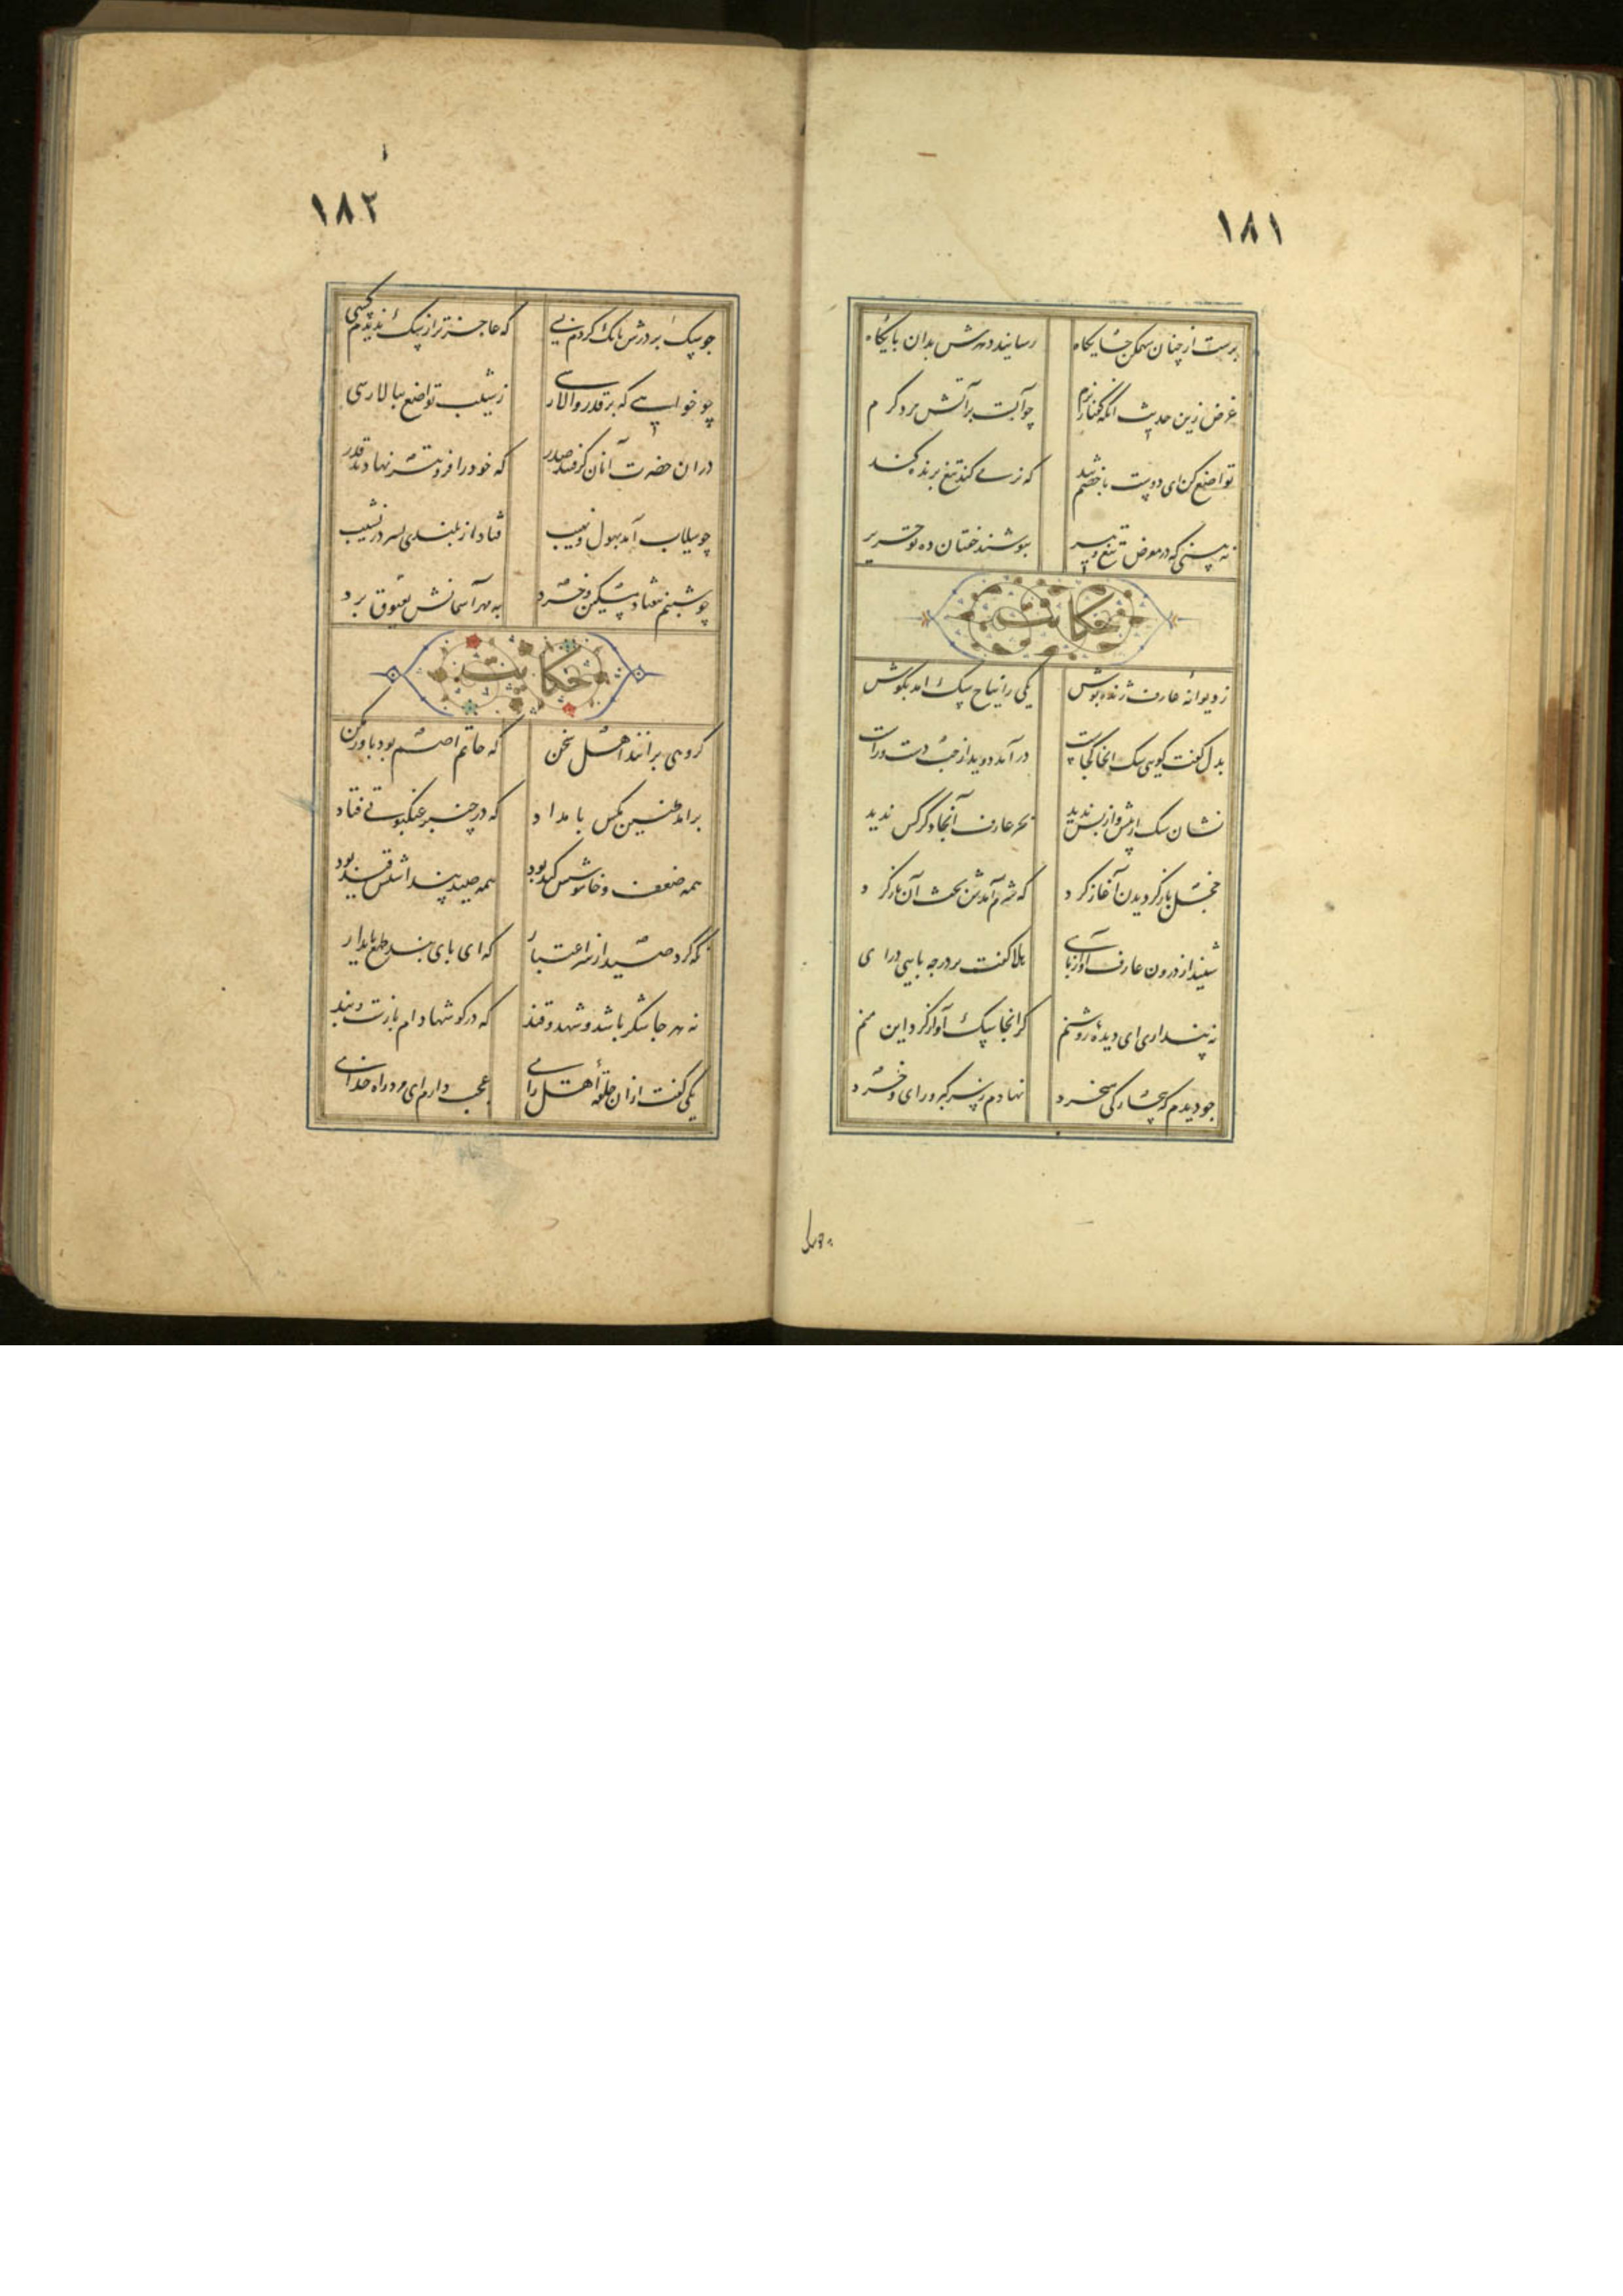 ۱۸۱
برست از چنان سهمگن جایگاه رسانید دهرش بدان پایگاه
غرض زین حدیث آنکه گفتار نرم چو آبست بر آتش مرد گرم
تواضع کن ای دوست با خصم تند که نرمی کند تیغ برنده کند
نه بینی که در معرض تیغ و تیر بپوشند خفتان ده تو حریر
حکایت
ز ویرانهٔ عارف ژنده پوش یکی را نباح سگ آمد بگوش
بدل گفت گویی سگ اینجا کجاست درآمد دوید از چپ دست و راست
نشان سگ از پیش و از پس ندید بجز عارف آنجا دگر کس ندید
خجل باز گردیدن آغاز کرد که شرم آمدش بحث آن باز کرد
شنید از درون عارف آواز پای هلا گفت بر در چه پایی درای
نه پنداری ای دیدهٔ روشنم کز اینجا سگ آواز کرد این منم
چو دیدم که بیچارگی میخرد نهادم ز سر کبر و رای و خرد
۱۸۲
چو سگ بر درش بانگ کردم بسی که عاجزتر از سگ ندیدم کسی
چو خواهی که بر قدر والا رسی ز شیب تواضع ببالا رسی
در ان حضرت آنان گرفتند صدر که خود را فروتر نهادند قدر
چو سیلاب آمد بهول و نهیب فتاد از بلندی بسر در نشیب
چو شبنم بیفتاد مسکین و خرد به مهر آسمانش بعیوق برد
حکایت
گروهی برانند اهل سخن که حاتم اصم بود باور مکن
برامد طنین مگس بامداد که در چنبر عنکبوتی فتاد
همه ضعف و خاموشیش کید بود مگس قند پنداشتش قید بود
نگه کرد شیخ از سر اعتبار که ای پای بند طمع پای دار
نه هر جا شکر باشد و شهد و قند که در گوشها دام بازست و بند
یکی گفت ازان حلقهٔ اهل رای عجب دارم ای مرد راه خدای